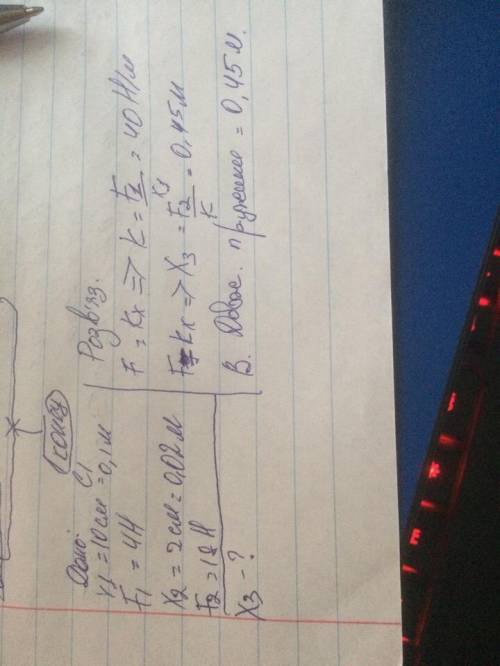 Дано: СІ
X1 = 10 см = 0,1 м
F1 = 4 Н
X2 = 2 см = 0,02 м
F2 = 18 Н
X3 - ?
Розв'яз.
F = Kx => K = F1/x1 = 40 Н/м
F = Kx => X3 = F2/K = 0,45 м
В. Довж. пружини = 0,45 м.